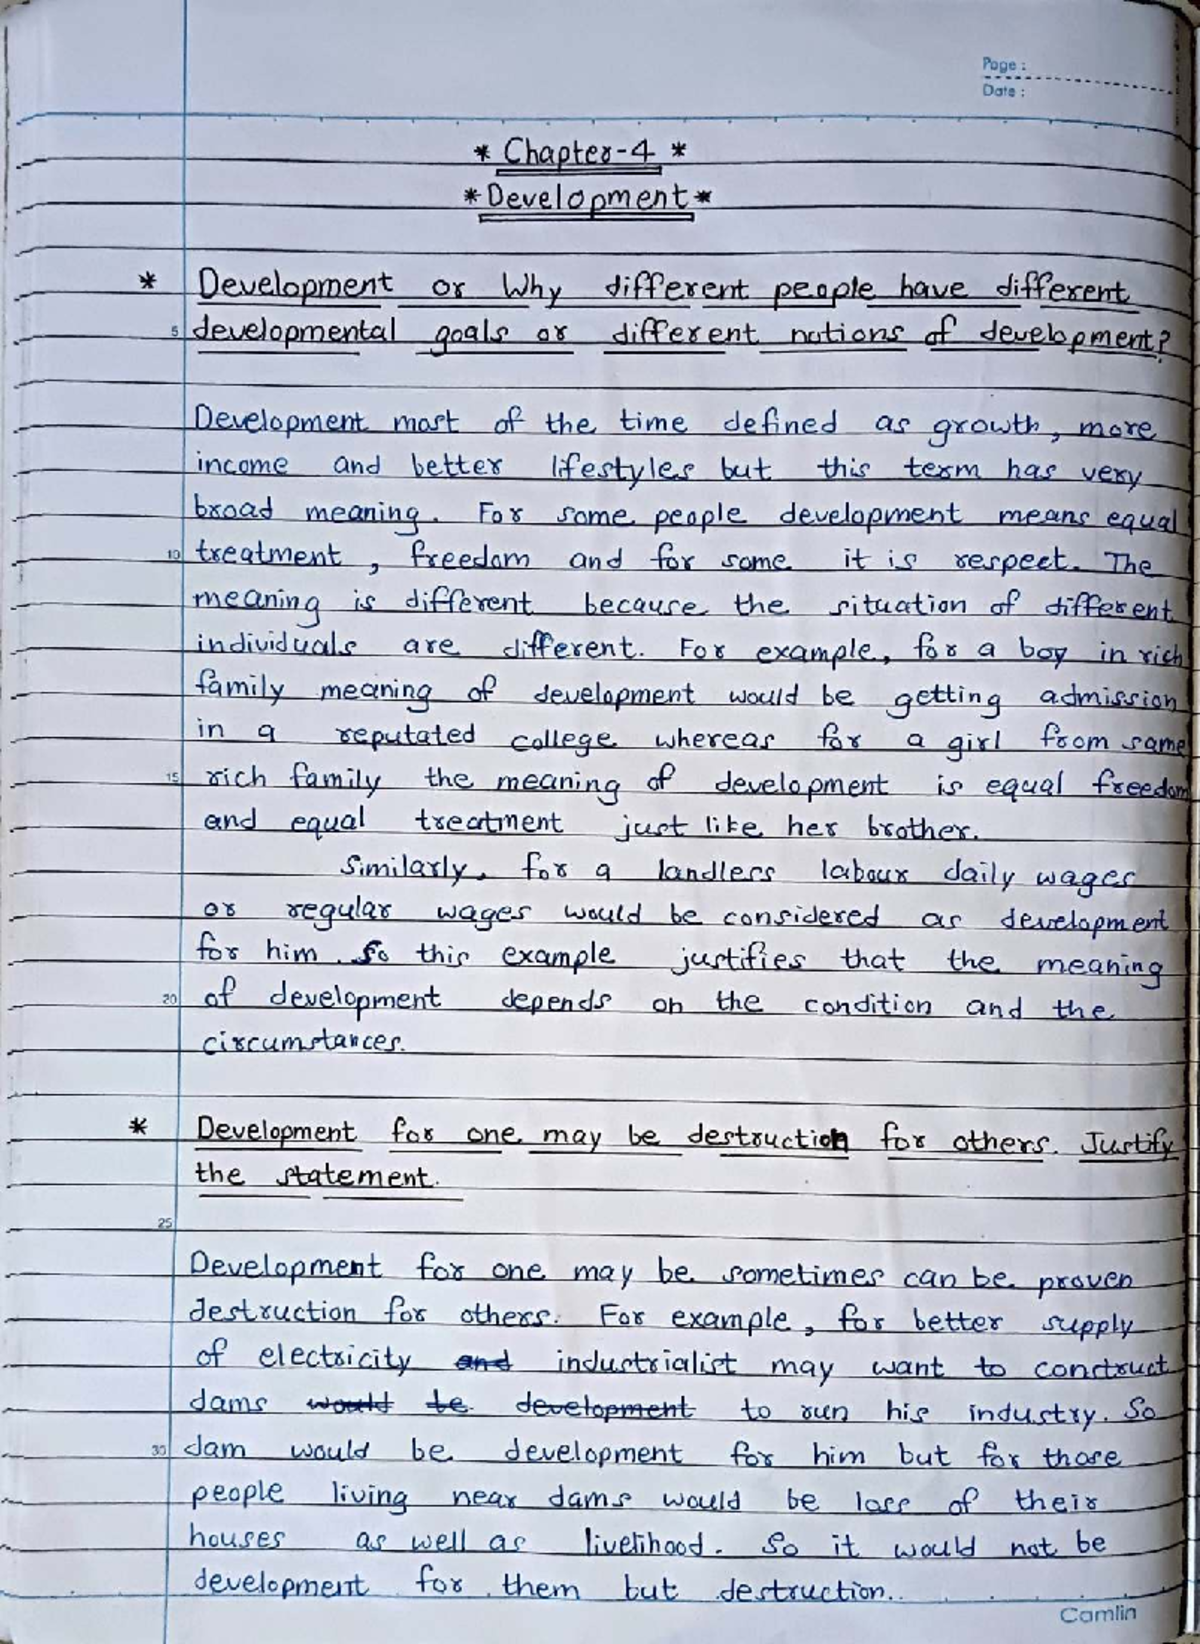 Page :
Date :
* Chapter-4 *
* Development *
* Development or Why different people have different
5 developmental goals or different notions of development?
Development most of the time defined as growth, more
income and better lifestyles but this term has very
broad meaning. For some people development means equal
10 treatment, freedom and for some it is respect. The
meaning is different because the situation of different
individuals are different. For example, for a boy in rich
family meaning of development would be getting admission
in a reputated college whereas for a girl from same
15 rich family the meaning of development is equal freedom
and equal treatment just like her brother.
Similarly, for a landless labour daily wages
or regular wages would be considered as development
for him. So this example justifies that the meaning
20 of development depends on the condition and the
circumstances.
* Development for one may be destruction for others. Justify
the statement.
25
Development for one may be sometimes can be proven
destruction for others. For example, for better supply
of electricity and industrialist may want to construct
dams would be development to run his industry. So
30 dam would be development for him but for those
people living near dams would be loss of their
houses as well as livelihood. So it would not be
development for them but destruction.
Camlin